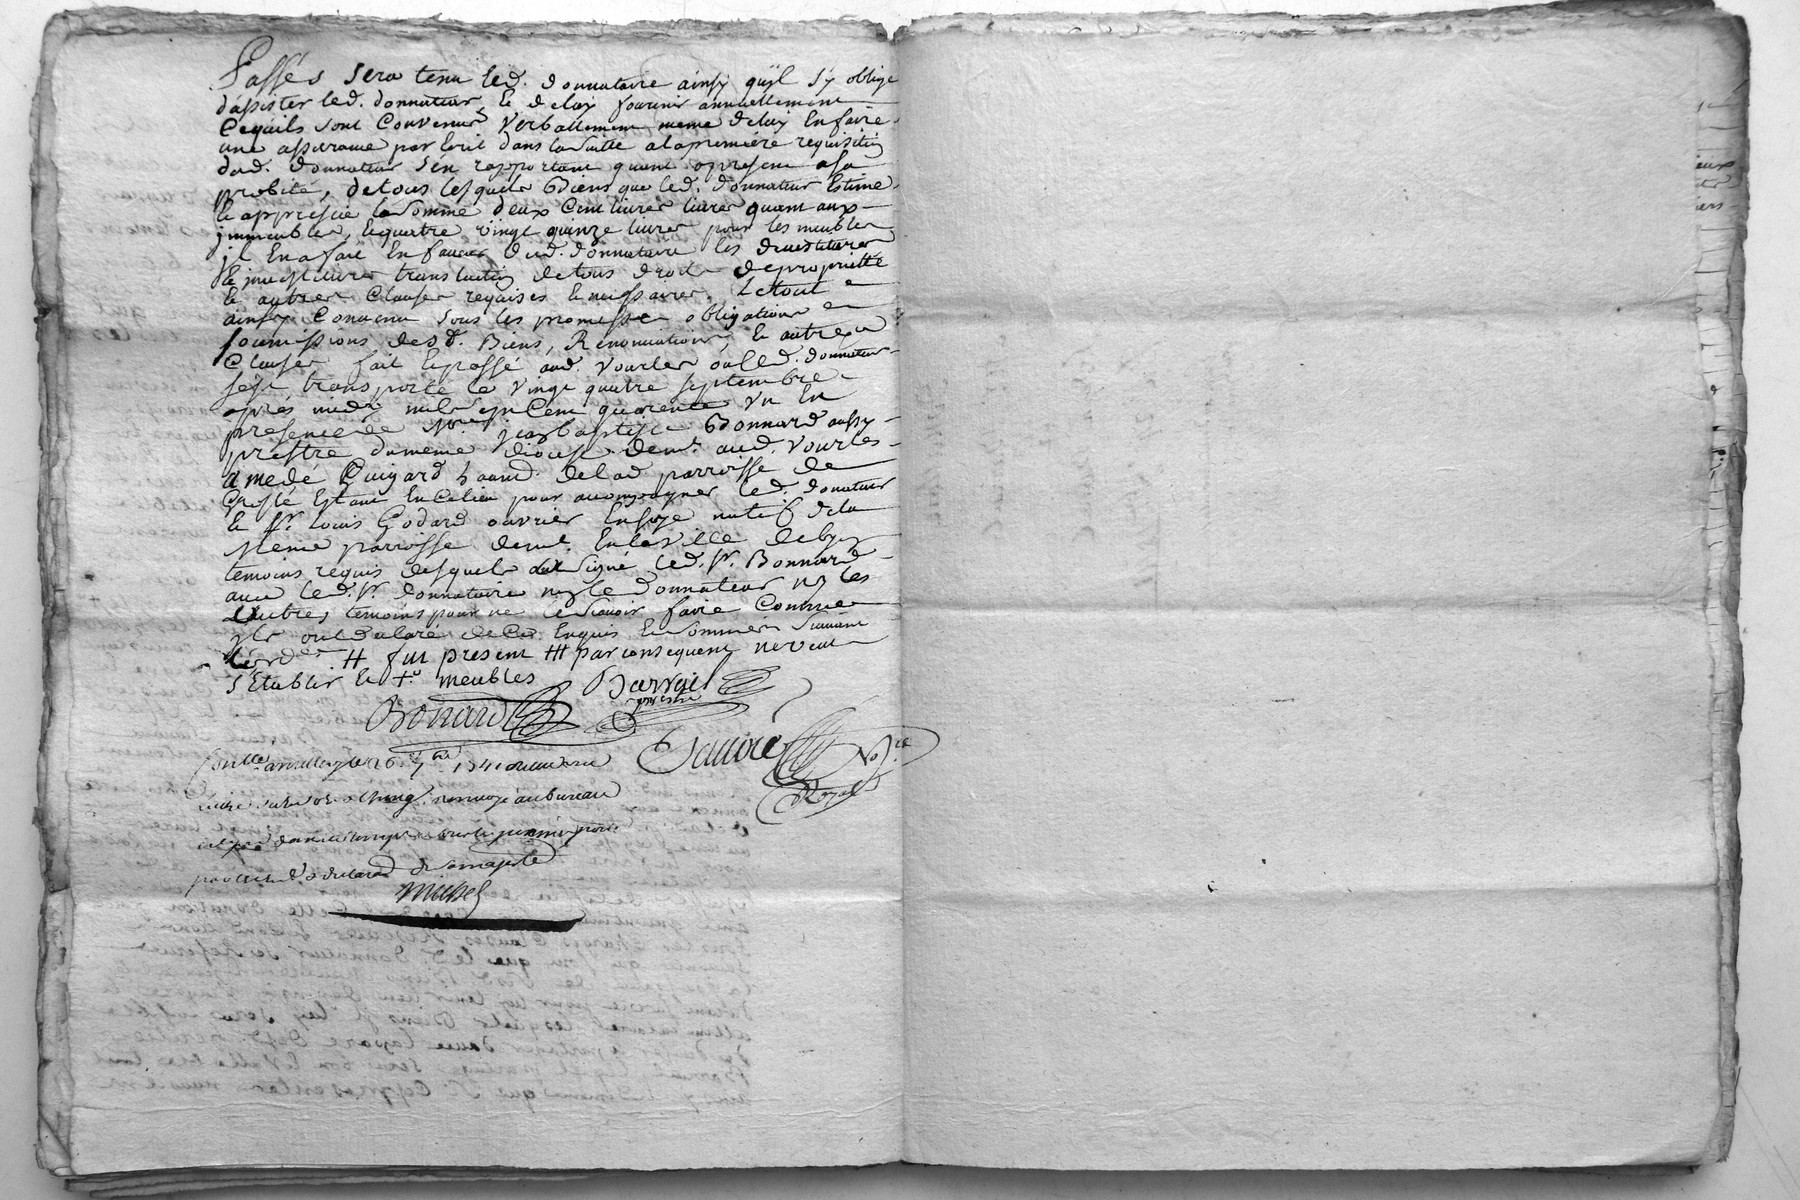 Passés sera tenu led. donnataire ainsy quil s'y oblige
d'assister led. donnateur, & de luy fournir annuellement
Cequils sont Convenus verballement meme deluy En faire
une assurance par Ecrit dans la suitte alapremiére requisition
dud. donnateur s'en rapportant quant apresent asa
probité, detous lesquels Biens que led. donnateur Estime
& apprecie la somme deux Cent livres livres quant aux
jmmeubles, & quatre vingt quinze livres pour les meubles
jl En a fait En faveur dud. donnataire les devestitures
& jnvestitures translation de tous droits de proprietté
& autres Clauses requises & necessaires. Le tout
ainsy Convenu sous les promesses obligations
soumissions desd. Biens, Renonciations, & autres
Clauses fait & passé aud. Vourles ou led. donnateur
s'est transporté le vingt quatre septembre
aprés midy mil sept Cent quarente un En
presence de jean baptiste Bonnard aussy
prestre du meme diocese demt. aud. Vourles
Amedé Guigard habitt. delad parroisse de
estant En Celieu pour accompagner led. donnateur
& Sr. Louis Godard ouvrier En soye natif dela
Meme parroisse demt. En la ville de lyon
temoins requis desquels ont signé led. Sr. Bonnard
avec led. Sr. donnataire ny le donnateur ny les
autres temoins pour ne le scavoir faire Comme
jls ont declaré de Ce Enquis & sommés suivant
L'ordce # fut present ## par consequent ne veut
s'Etablir & +. meubles Barrail
prestre
Bonnard
Notre
Royal
a le 26 7bre 1741
au bureau
dans le temps
de sa majesté
Michel